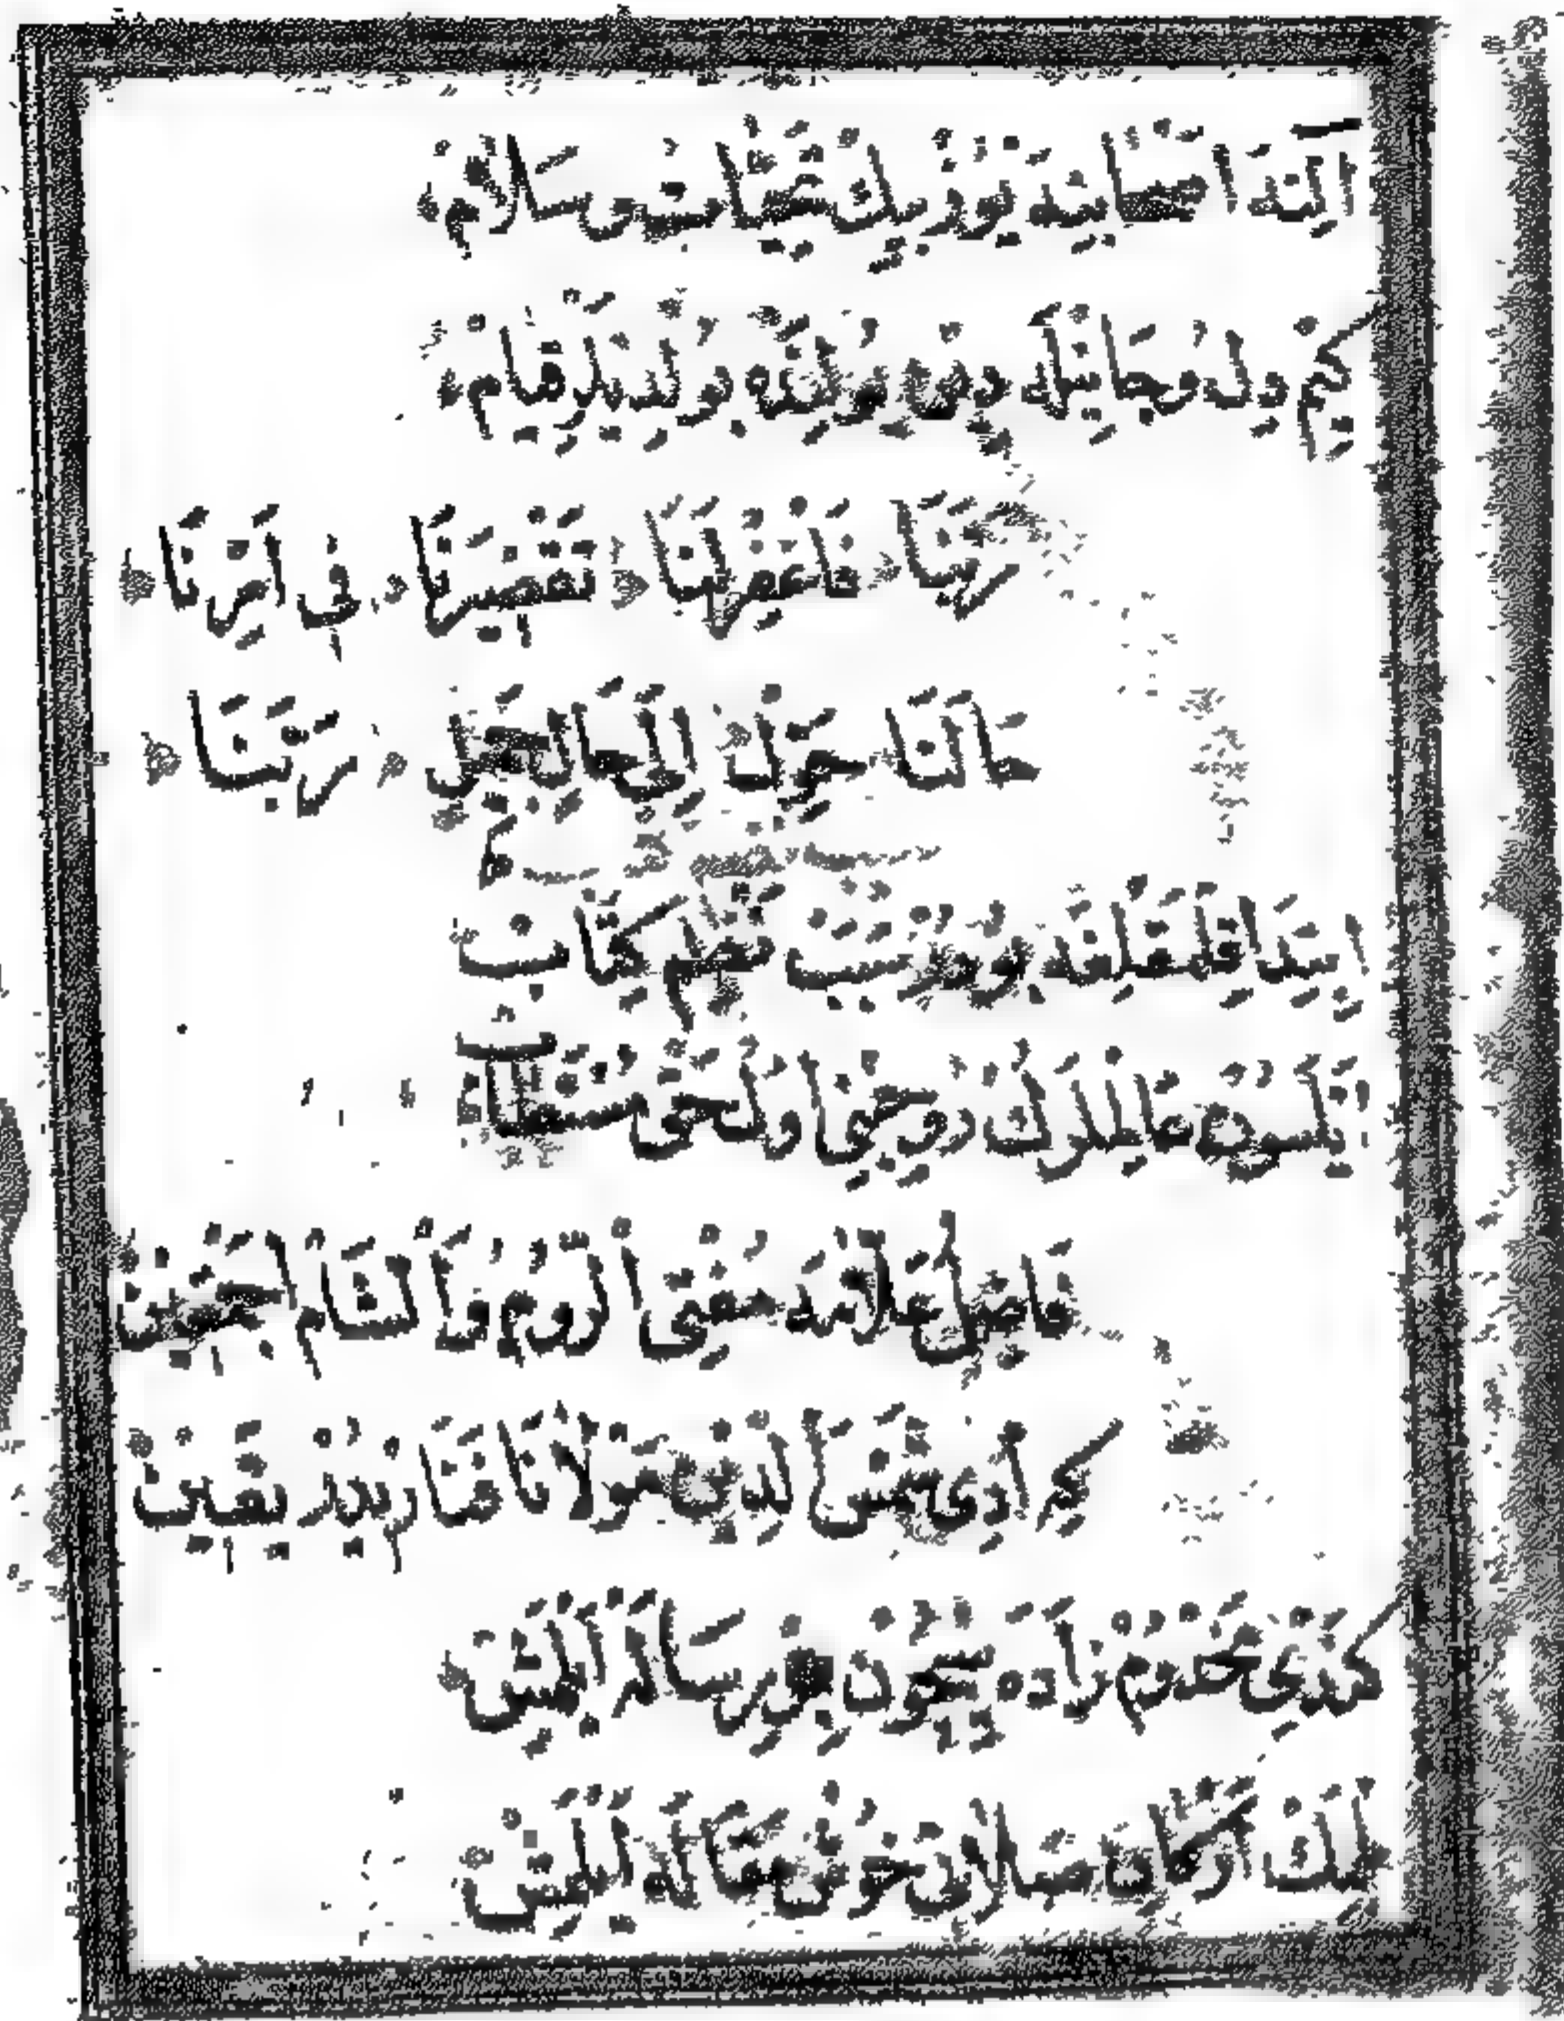 اٰلِنَه اَصْحَابِنَه يُوزْ بِيكْ تَحِيَّاتْ وسَلَامْ
كِيم دِل وجَانِيلَه دِينْ يُولِنْدَه بُولَرْ قِيَامْ
رَبَّنَا فَاغْفِرْلَنَا تَقْصِيرَنَا فِي اَمْرِنَا
حَالَنَا حَوِّلْ اِلَى حَالٍ حَسَنْ رَبَّنَا
اِبْتِدَا قِلْمَقْلِغَه بُودُرْ سَبَبْ نَظْمِ كِتَابْ
اَيْلَسُونْ عَالِملَرِكْ رُوحِنِى اُولْ حَقْ مُسْتَطَابْ
فَاضِلُ عَلَّامَه مُفْتِىٔ اَلرُّومُ وَاَلشَّامْ اَجْمَعِينْ
كِم اَدِى شَمْسُ الدِينِ مَوْلَانَا فَنَارِيدُرْ يَقِينْ
كَنْدِى مَخْدُومْ زَادَه سِيچُونْ بِرْ رِسَالَه اَيْلَمِشْ
بِيلِكْ اَرْكَانِ صَلَاتِى خُوشْ مَقَالَه اَيْلَمِشْ